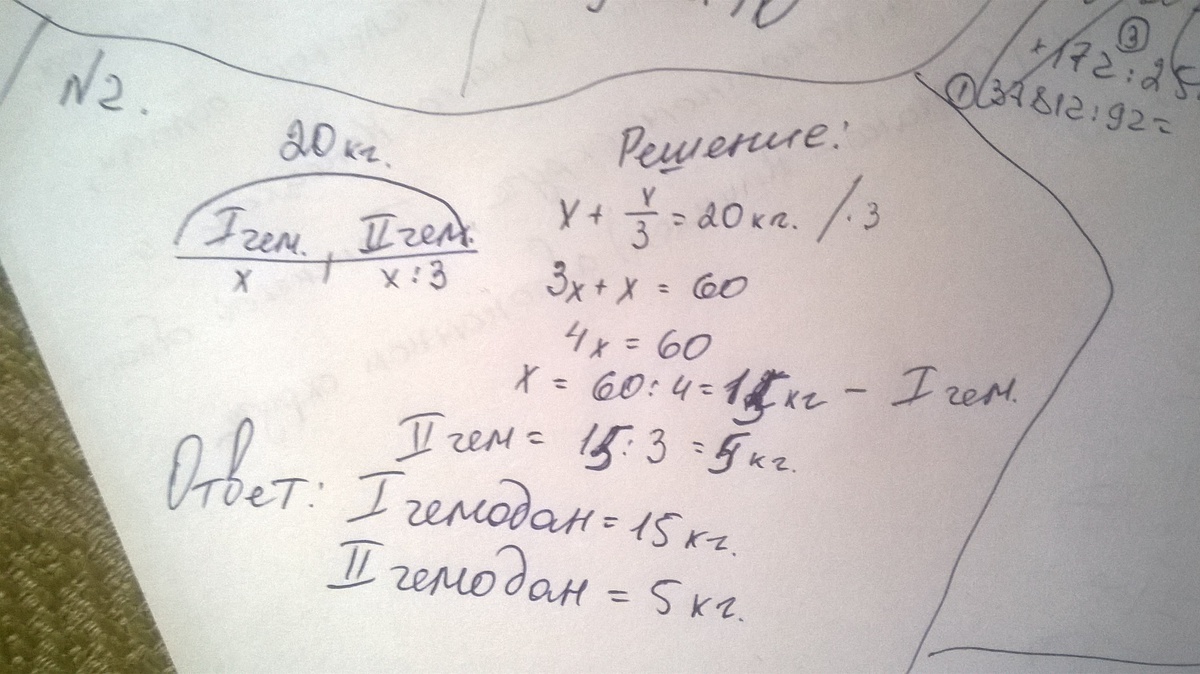 N2.
20 кг.
I чем. II чем.
x x : 3
Решение:
x + x/3 = 20 кг. / · 3
3x + x = 60
4x = 60
x = 60 : 4 = 15 кг – I чем.
II чем = 15 : 3 = 5 кг.
Ответ: I чемодан = 15 кг.
II чемодан = 5 кг.
3
+172 : 25
1 (37812 : 92 =